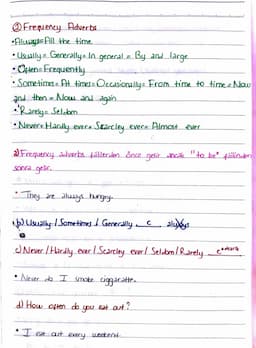 ② Frequency Adverbs
• Always= All the time
• Usually = Generally = In general = By and large
• Often = Frequently
• Sometimes = At times = Occasionally = From time to time = Now
and then = Now and again
• Rarely = Seldom
• Never = Hardly ever = Scarcley ever = Almost ever
a) Frequency adverbs fiillerden önce gelir ancak "to be" fiilinden
sonra gelir.
• They are always hungry.
b) Usually / Sometimes / Generally , c
c) Never / Hardly ever / Scarcley ever / Seldom / Rarely
• Never do I smoke ciggarette.
d) How often do you eat out?
• I eat out every weekend.